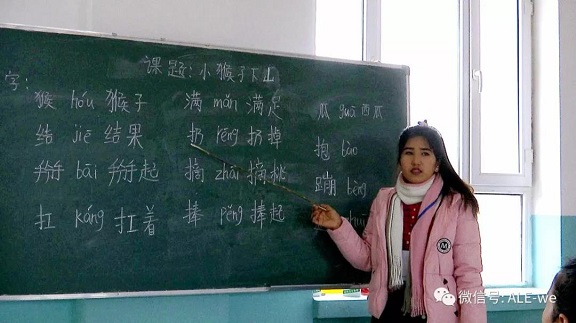 课题:小猴子下山
字:
猴 hóu 猴子 满 mǎn 满足 瓜 guā 西瓜
结 jiē 结果 扔 rēng 扔掉 抱 bào
掰 bāi 掰起 摘 zhāi 摘桃 蹦 bèng
扛 káng 扛着 捧 pěng 捧起
M
微信号: ALE-we